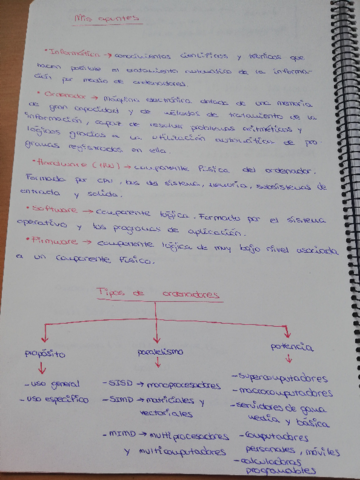 Mis apuntes
• Informática → conocimientos científicos y técnicos que
hacen posible el tratamiento automático de la informa-
ción por medio de ordenadores.
• Ordenador → Máquina electrónica dotada de una memoria
de gran capacidad y de métodos de tratamiento de la
información, capaz de resolver problemas aritméticos y
lógicos gracias a la utilización automática de pro-
gramas registrados en ella.
• Hardware → componente física del ordenador.
Formado por CPU, bus de sistema, memoria, subsistema de
entrada y salida.
• Software → componente lógica. Formado por el sistema
operativo y los programas de aplicación.
• Firmware → componente lógica de muy bajo nivel asociada
a un componente físico.
Tipos de ordenadores
propósito paralelismo potencia
- uso general
- uso específico
- SISD → monoprocesadores
- SIMD → matriciales y
vectoriales
- MIMD → multiprocesadores
y multicomputadores
- supercomputadores
- macrocomputadores
- servidores de gama
media y básica
- computadores
personales, móviles
- calculadoras
programables